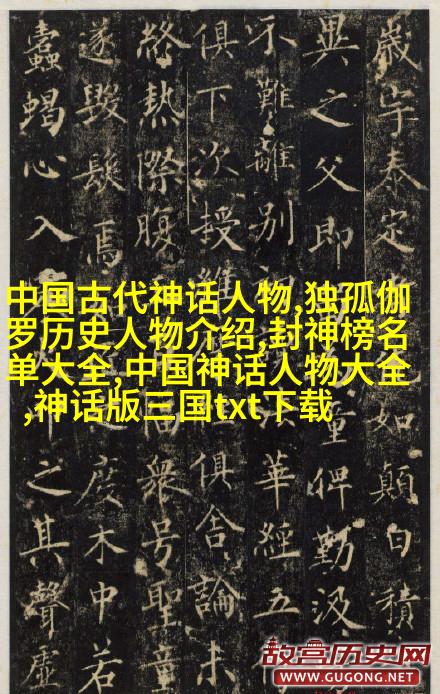 歲宇泰定
如顛白積
異之父即
童俾勤汲
不難離別
華經五
俱下次授維
俱舍論未
終熱際腹
衆号聖童
遂毀髮焉
度木中若
蠹蝎心入
之其聲虛
中国古代神话人物,独孤伽
罗历史人物介绍,封神榜名
单大全,中国神话人物大全
,神话版三国txt下载
故宫历史网
WWW.GUGONG.NET